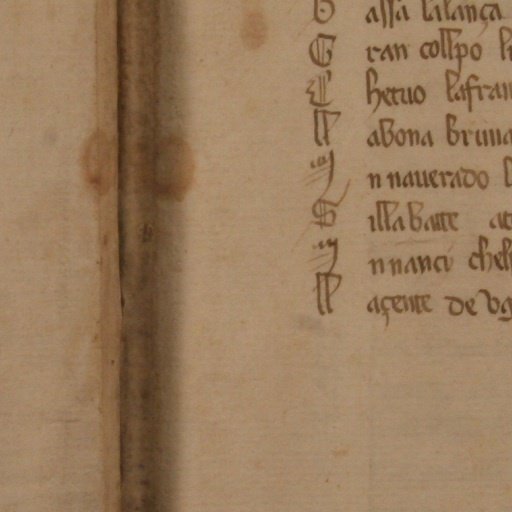 B assa lalança
G ran colpo
C hetuo lafran
L abona bruna
I nnauerado
S illabatte
I nnanci chel
L açente de